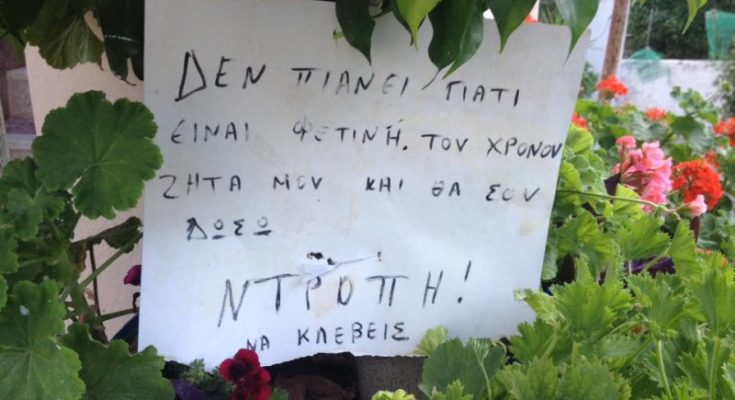 ΔΕΝ ΠΙΑΝΕΙ ΓΙΑΤΙ
ΕΙΝΑΙ ΦΕΤΙΝΗ. ΤΟΥ ΧΡΟΝΟΥ
ΖΗΤΑ ΜΟΥ ΚΗΙ ΘΑ ΣΟΥ
ΔΩΣΩ
ΝΤΡΟΠΗ!
ΝΑ ΚΛΕΒΕΙΣ